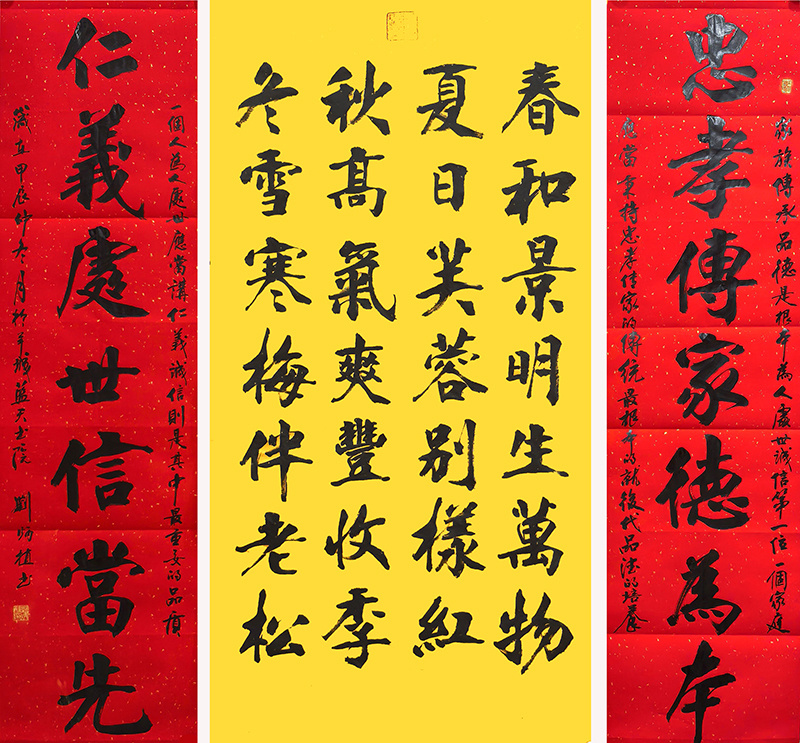 家族傳承品德是根本為人處世誠信第一位一個家庭
忠孝傳家德為本
應當秉持忠孝傳家的傳統最根本的就後代品德的培養
春和景明生萬物
夏日芙蓉別樣紅
秋高氣爽豐收季
冬雪寒梅伴老松
一個人為人處世應當講仁義誠信則是其中最重要的品質
仁義處世信當先
歲在甲辰仲冬月於羊城藍天書院 劉炳植書